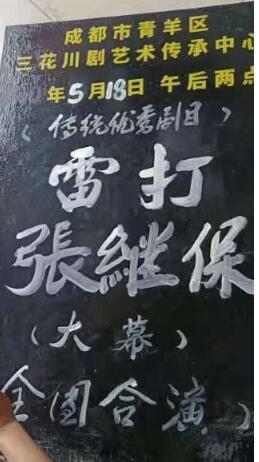 成都市青羊区
三花川剧艺术传承中心
年5月18日 午后两点
(传统优秀剧目)
雷打
張継保
(大幕)
全团合演)